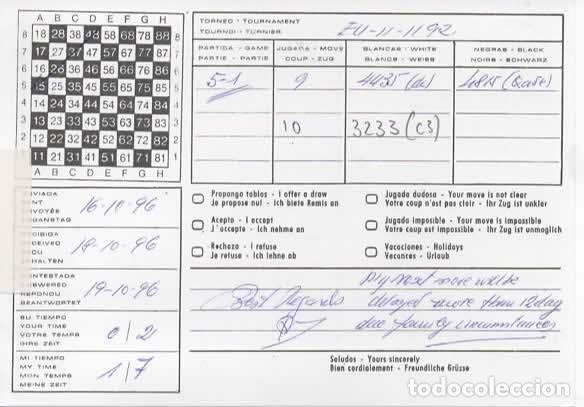 TORNEO - TOURNAMENT
TOURNOI - TURNIER
EU-II-1192
PARTIDA - GAME JUGADA - MOVE BLANCAS - WHITE NEGRAS - BLACK
PARTIE - PARTIE COUP - ZUG BLANCS - WEISS NOIRS - SCHWARZ
5-1 9 4435
10 3233 (c3)
A B C D E F G H
8 18 28 38 48 58 68 78 88 8
7 17 27 37 47 57 67 77 87 7
6 16 26 36 46 56 66 76 86 6
5 15 25 35 45 55 65 75 85 5
4 14 24 34 44 54 64 74 84 4
3 13 23 33 43 53 63 73 83 3
2 12 22 32 42 52 62 72 82 2
1 11 21 31 41 51 61 71 81 1
A B C D E F G H
16-10-96
19-10-96
19-10-96
SU TIEMPO
YOUR TIME
VOTRE TEMPS
IHRE ZEIT
0/2
MI TIEMPO
MY TIME
MON TEMPS
MEINE ZEIT
1/7
Propongo tablas - I offer a draw
Je propose nul - Ich biete Remis an
Acepto - I accept
J'accepte - Ich nehme an
Rechazo - I refuse
Je refuse - Ich lehne ab
Jugada dudosa - Your move is not clear
Votre coup n'est pas clair - Ihr Zug ist unklar
Jugada imposible - Your move is impossible
Votre coup est impossible - Ihr Zug ist unmoglich
Vacaciones - Holidays
Vacances - Urlaub
My next move will be
Best regards
delayed more than 12 day
due family circumstances
Saludos - Yours sincerely
Bien cordialement - Freundliche Grüsse
todocoleccion.net